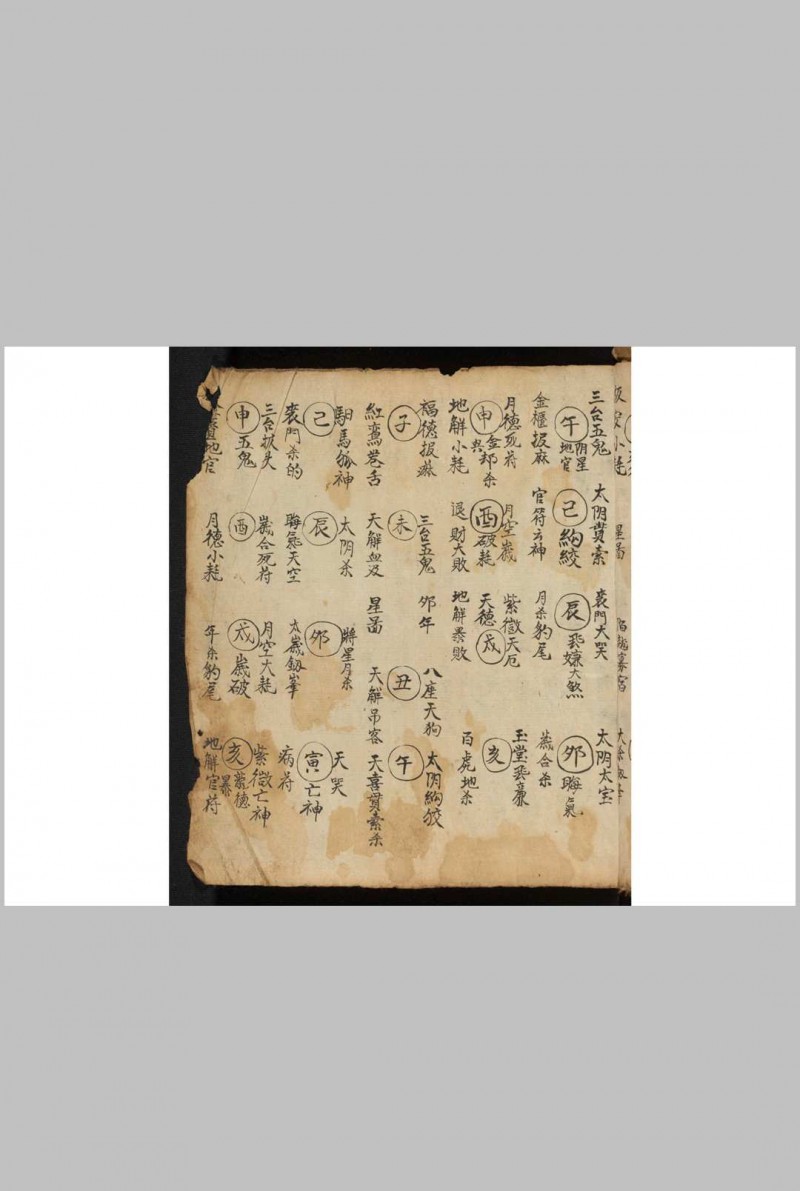 三台五鬼 太阴貫索 喪門大哭 太阴太宝
午 阴星地官 己 絇絞 辰 蜚嫌大煞 夘 晦氣
金櫃披麻 官符亡神 月杀豹尾 歲合杀
月德死符 月空歲 紫微天厄 玉堂蜚廉
申 金邦杀 酉 破耗 天德 戌 亥
地解小耗 退財大敗 地解暴敗 百虎地杀
福德披蔴 三台五鬼 夘年 八座天狗 太阴絇狡
子 未 丑 午
紅鸞卷舌 天解血刄 星啚 天解吊客 天喜貫索杀
馹馬孤神 太阴杀 將星月杀 天哭
己 辰 夘 寅 亡神
喪門杀的 晦氣天空 太歲劔峯 病符
三台披头 歲合死符 月空大耗 紫微亡神
申 五鬼 酉 戌 歲破 亥 紫德暴
地官 月德小耗 年杀豹尾 地解官符